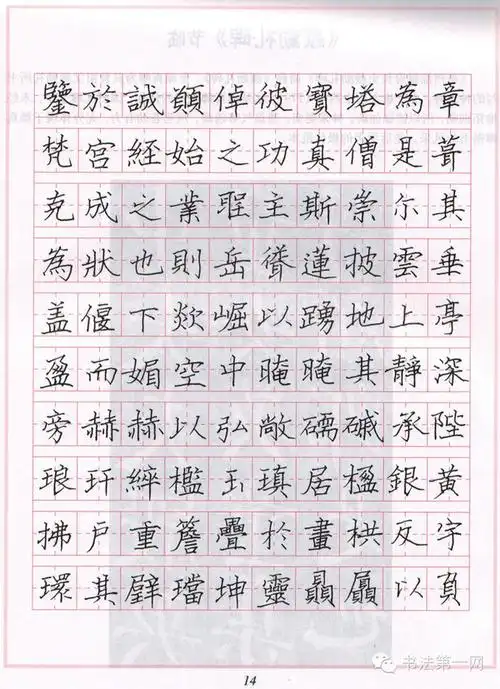 鑒於誠願倬彼寶塔為章
梵宫經始之功真僧是葺
克成之業聖主斯崇尔其
為狀也則岳聳蓮披雲垂
盖偃下欻崛以踴地上亭
盈而媚空中晻晻其靜深
旁赫赫以弘敞礝磩承陛
琅玕綷檻玉瑱居楹銀黃
拂户重簷疊於畫栱反宇
環其璧璫坤靈贔屭以負
14
书法第一网